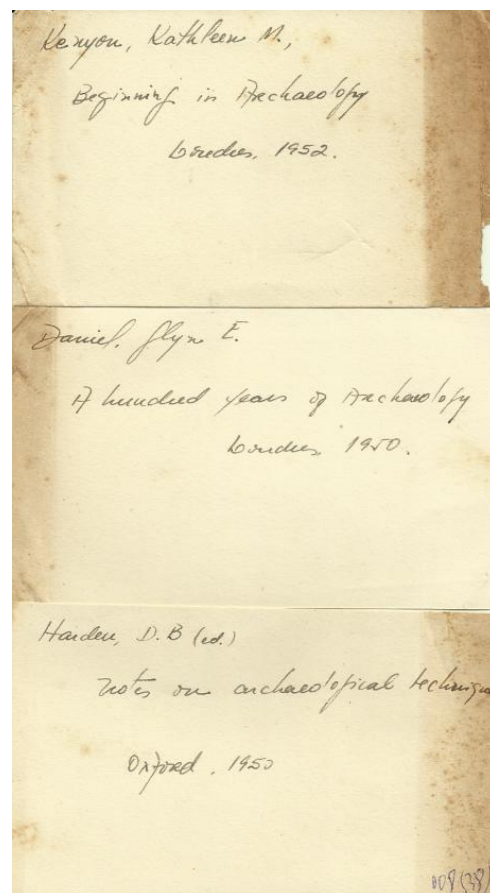 Kenyon, Kathleen M.,
Beginning in Archaeology
Londres, 1952.
Daniel, Glyn E.
A hundred years of Archaeology
Londres 1950.
Harden, D.B (ed.)
notes on archaeological technique
Oxford, 1950